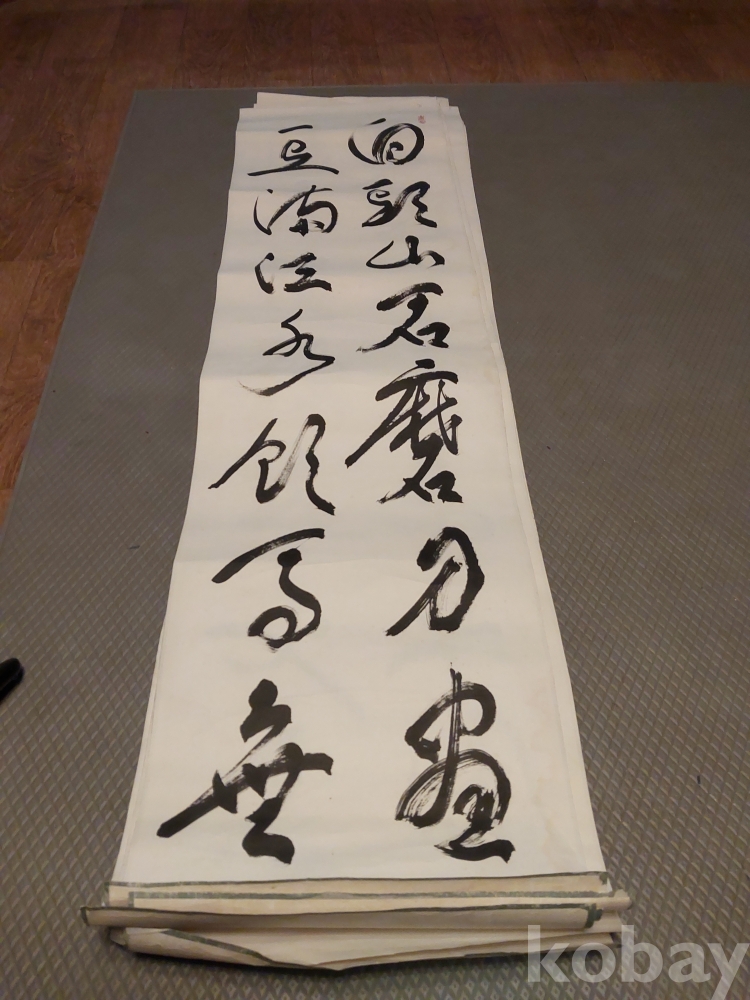 白頭山石磨刀盡
豆滿江水飮馬無
kobay